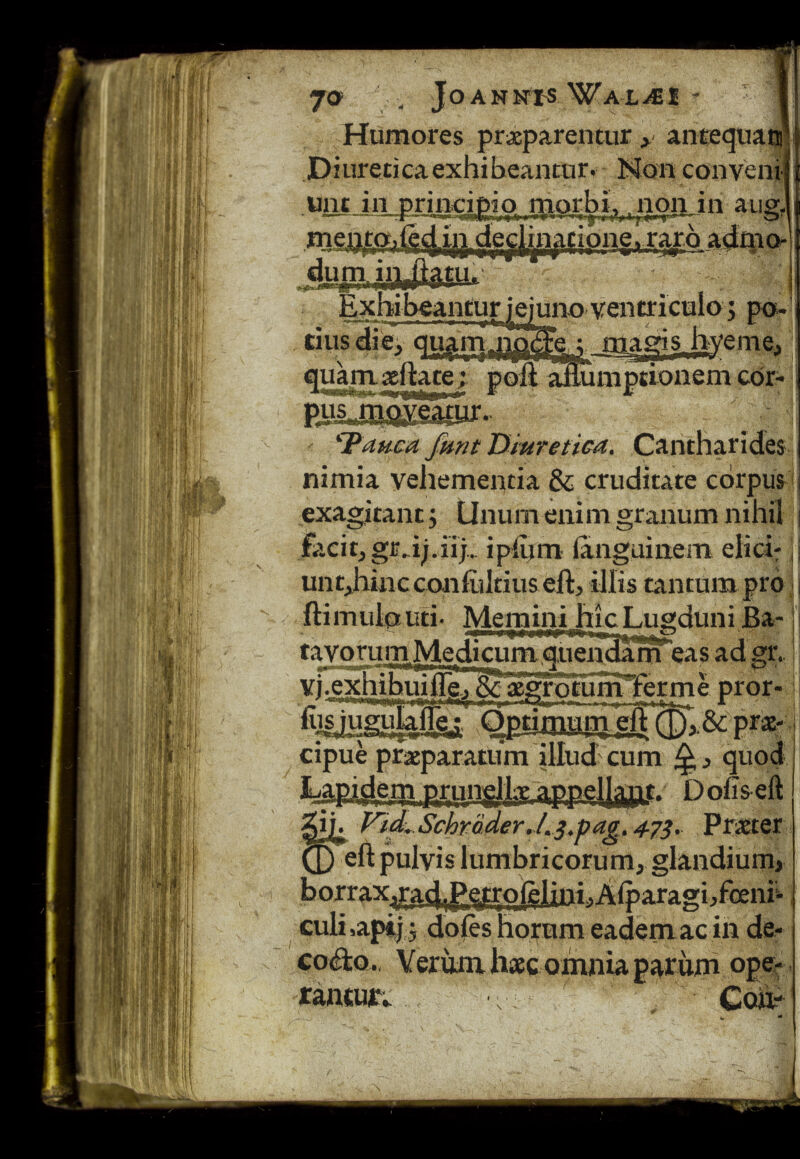 70 JOANNIS WALÆI
Humores præparentur, antequam
Diuretica exhibeantur. Non conveni-
unt in principio morbi, non in aug-
mento, sed in declinatione, raro admo-
dum in statu.
Exhibeantur jejuno ventriculo; po-
tius die, quam nocte; magis hyeme,
quam æstate; post assumptionem cor-
pus moveatur.
Pauca sunt Diuretica. Cantharides
nimia vehementia & cruditate corpus
exagitant; Unum enim granum nihil
facit, gr. ij. iij. ipsum sanguinem elici-
unt, hinc consultius est, illis tantum pro
stimulo uti. Memini hîc Lugduni Ba-
tavorum Medicum quendam eas ad gr.
vj. exhibuisse, & ægrotum ferme pror-
sus jugulasse; Optimum est 🜕, & præ-
cipuè præparatum illud cum 🜍, quod
Lapidem prunellæ appellant. Dosis est
ʒij. Vid. Schröder. l. 3. pag. 473. Præter
🜕 est pulvis lumbricorum, glandium,
borrax, rad. Petroselini, Asparagi, fœni-
culi, apij; doses horum eadem ac in de-
cocto. Verùm hæc omnia parùm ope-
rantur. Con-